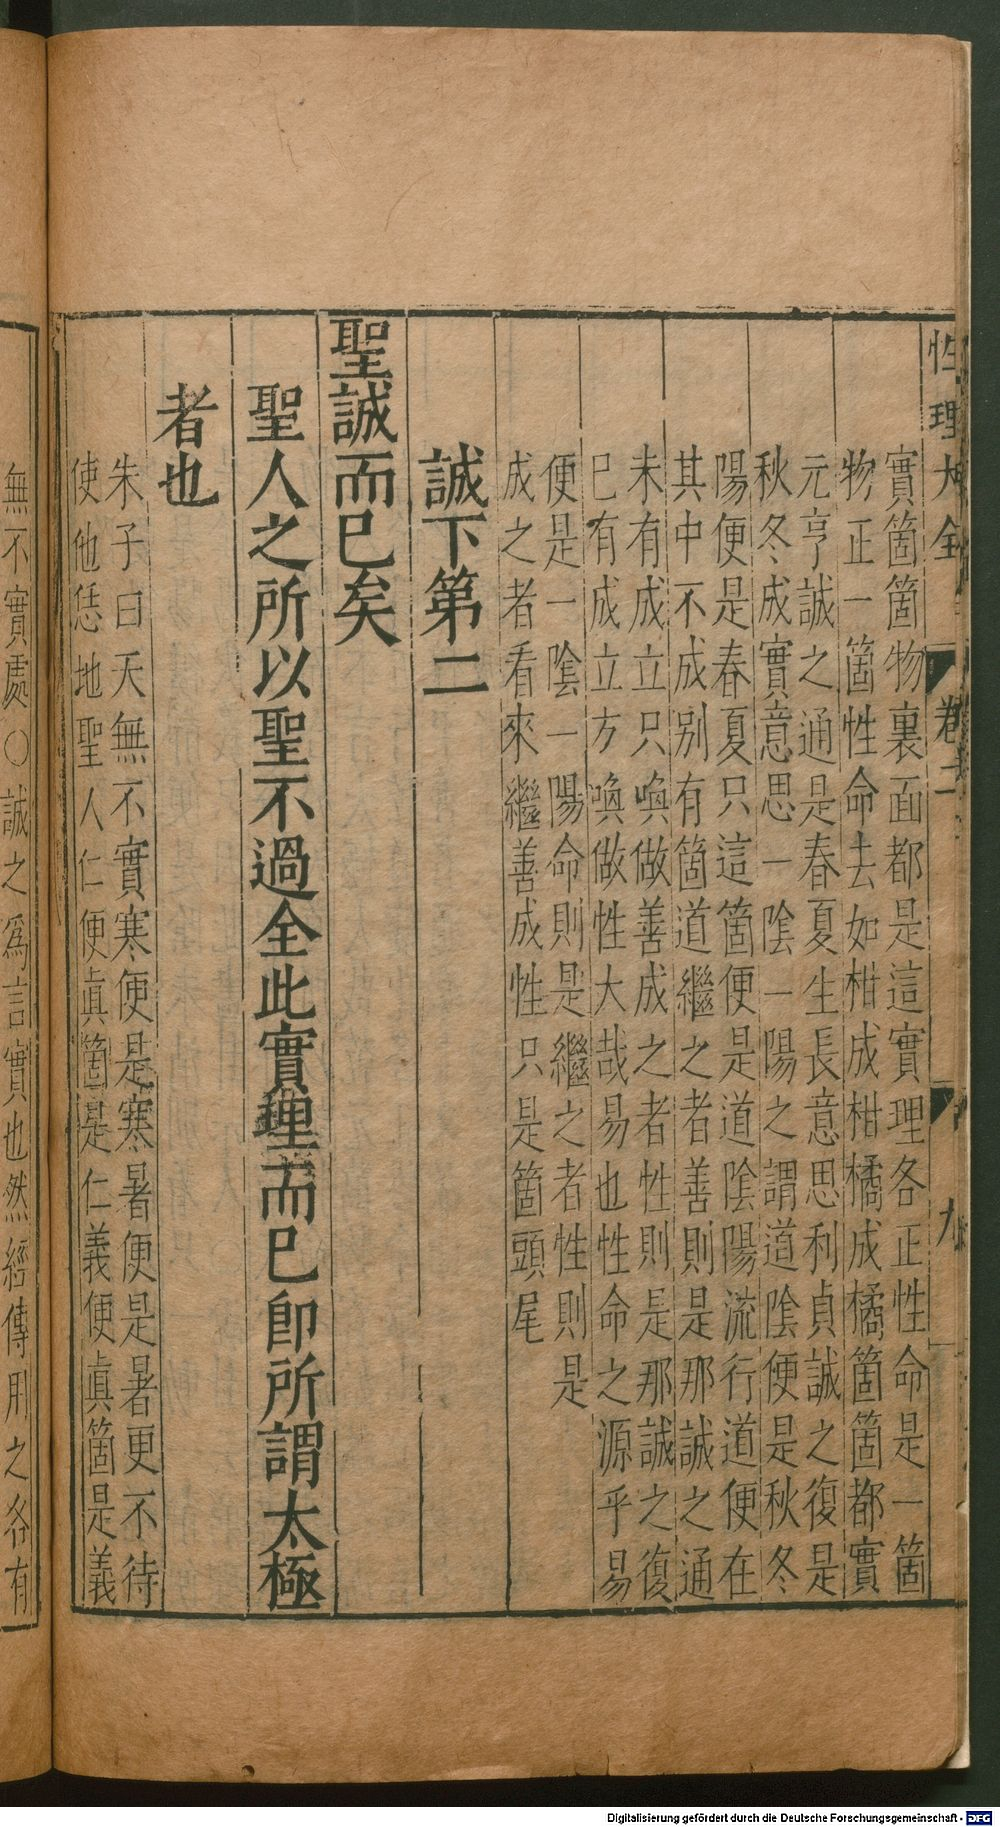 性理大全 卷二 九
實箇箇物裏面都是這實理各正性命是一箇
物正一箇性命去如柑成柑橘成橘箇箇都實
元亨誠之通是春夏生長意思利貞誠之復是
秋冬成實意思 一陰一陽之謂道陰便是秋冬
陽便是春夏只這箇便是道陰陽流行道便在
其中不成别有箇道繼之者善則是那誠之通
未有成立只喚做善成之者性則是那誠之復
已有成立方喚做性大哉易也性命之源乎易
便是一陰一陽命則是繼之者性則是
成之者看來繼善成性只是箇頭尾
誠下第二
聖誠而已矣
聖人之所以聖不過全此實理而已卽所謂太極
者也
朱子曰天無不實寒便是寒暑便是暑更不待
使他恁地聖人仁便眞箇是仁義便眞箇是義
無不實處○誠之爲言實也然經傳用之各有
Digitalisierung gefördert durch die Deutsche Forschungsgemeinschaft - DFG